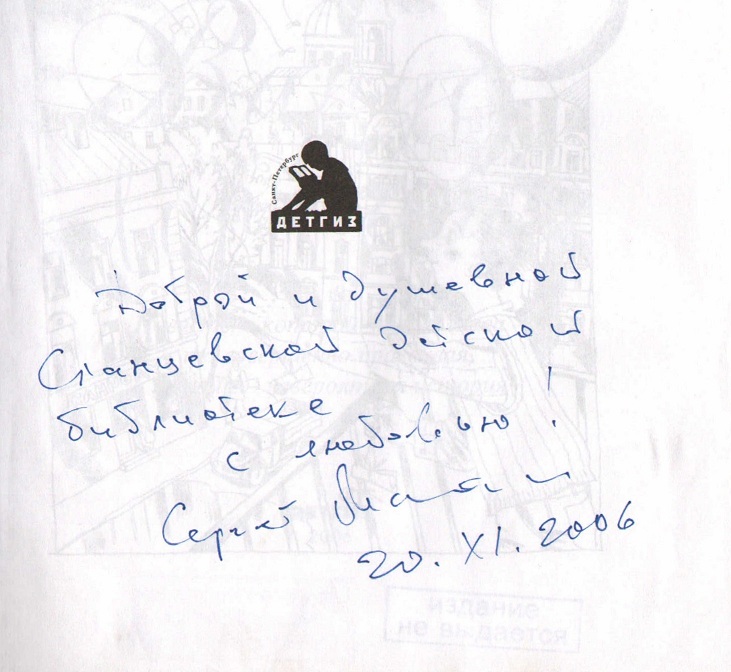 Санкт-Петербург
ДЕТГИЗ
Доброй и душевной
Сланцевской детской
библиотеке
с любовью!
Сергей
20. XI. 2006